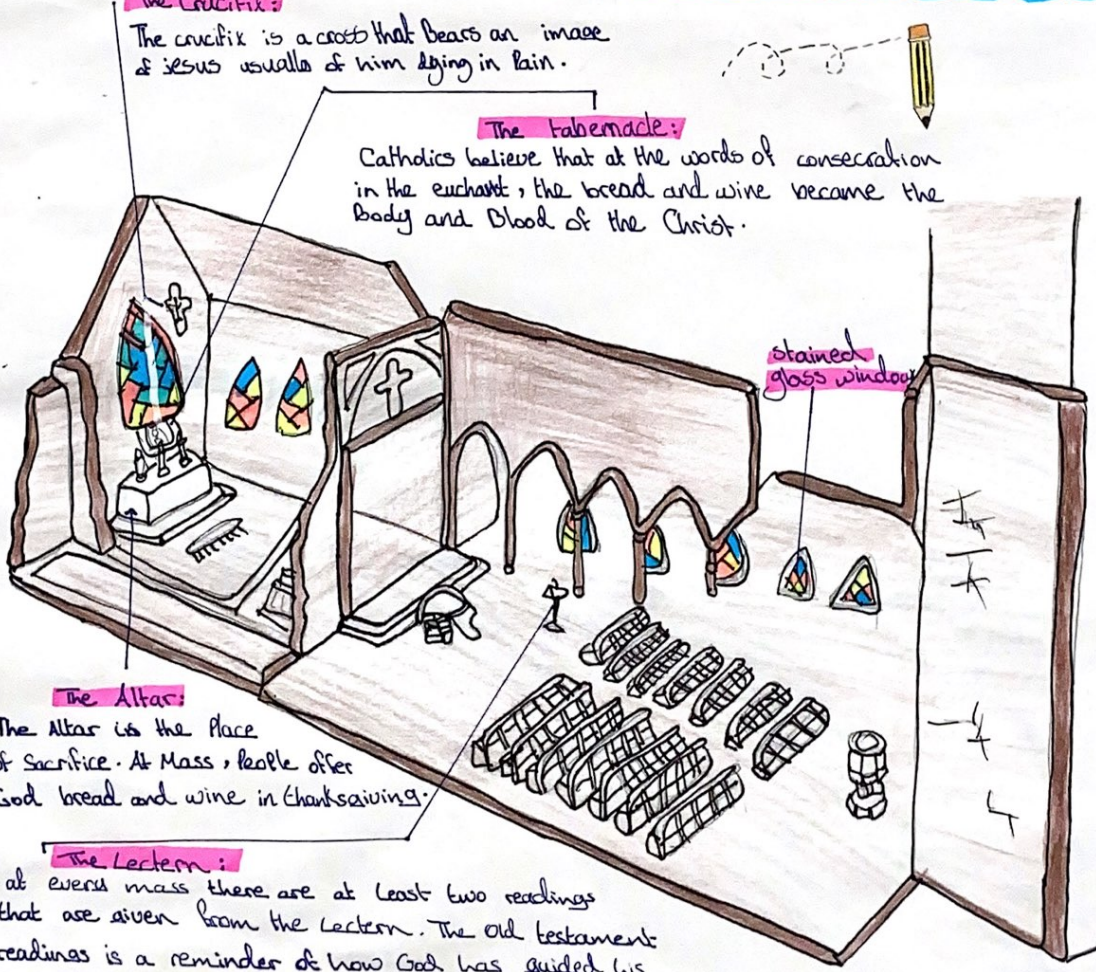 The Crucifix:
The crucifix is a cross that Bears an image
of jesus usually of him dying in Pain.
The tabernacle:
Catholics believe that at the words of consecration
in the eucharist, the bread and wine became the
Body and Blood of the Christ.
stained
glass window
The Altar:
The Altar is the Place
of Sacrifice. At Mass, People offer
God bread and wine in thanksgiving.
The Lectern:
at every mass there are at least two readings
that are given from the Lectern. The old testament
readings is a reminder of how God has guided his